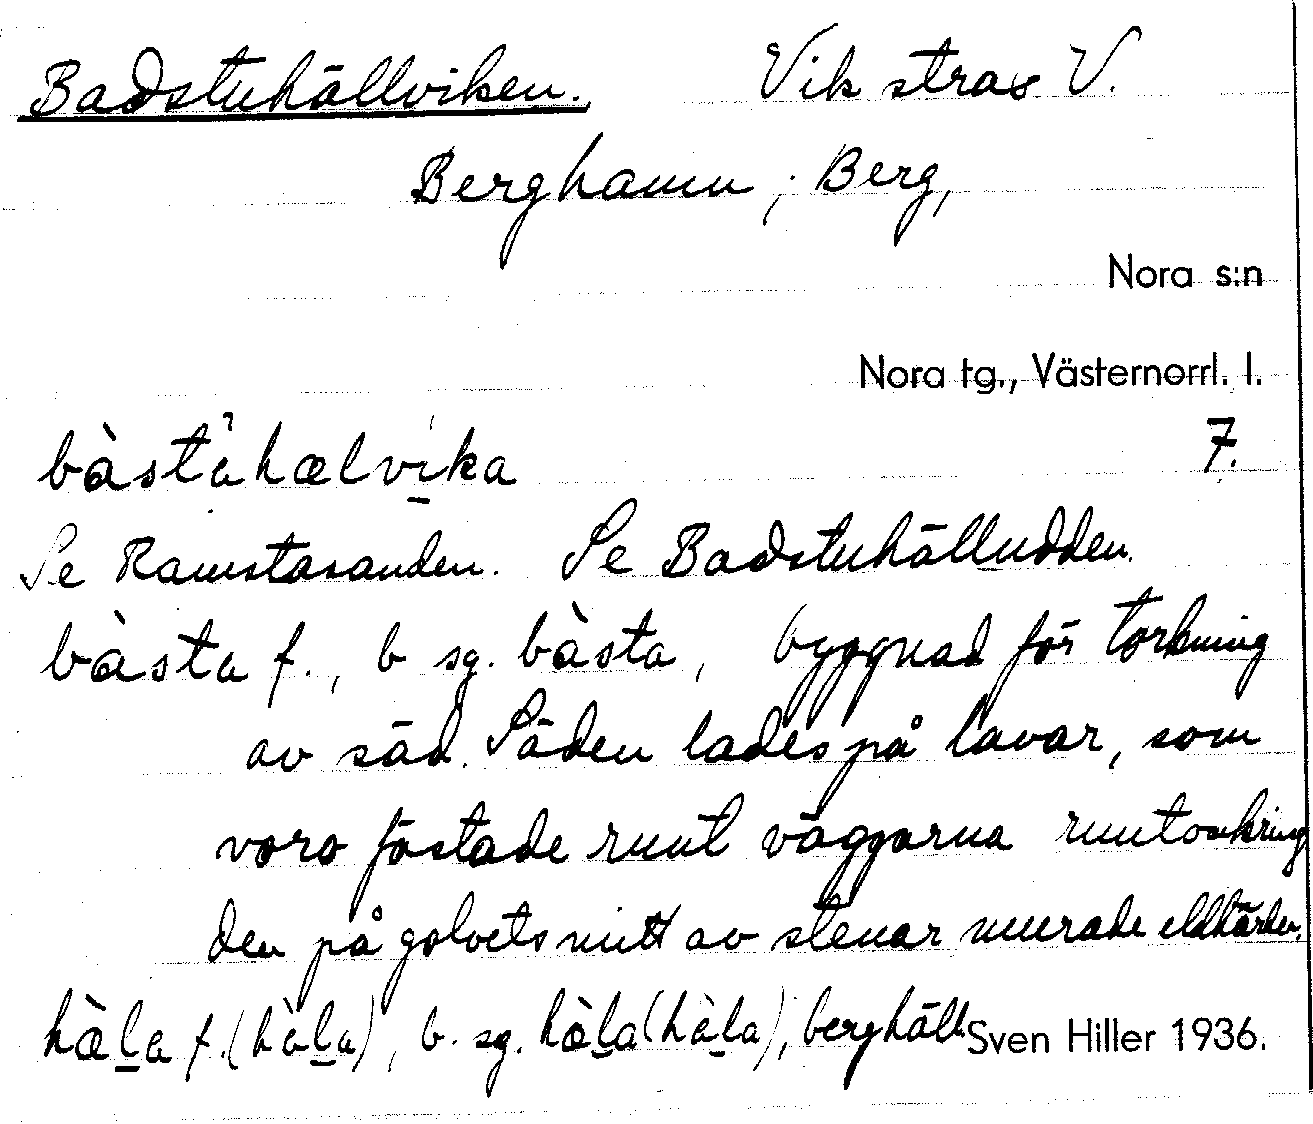 Badstuhällviken. Vik strax V.
Berghamn; Berg,
Nora s:n
Nora tg., Västernorrl. l.
bàstahælvika 7.
Se Ramstasanden. Se Badstuhälludden.
bàsta f., b sg. bàsta, byggnad för torkning
av säd. Säden lades på lavar, som
voro fästade runt väggarna runtomkring
den på golvets mitt av stenar murade eldhärden.
hæ̀l̲a f. (hàl̲a), b. sg. hæ̀l̲a (hàl̲a), berghäll.
Sven Hiller 1936.